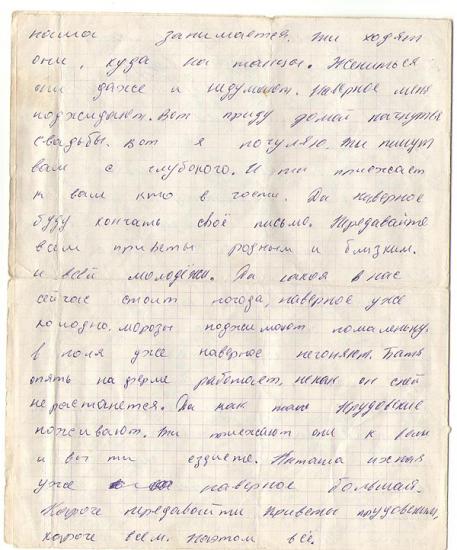 нама занимается. ти ходят
они, куда на танцы. Жениться
они даже и недумают. Наверное меня
поджидают. Вот приду домой начнутся
свадьбы. Вот я погуляю. Ти пишут
вам с глубокого. И ти приежает
к вам кто в гости. Да наверное
буду кончать своё письмо. Передавайте
всем приветы родным и близким.
и всей молодёжи. Да какая в нас
сейчас стоит погода, наверное уже
холодно. морозы поджимают помаленьку.
В поля уже наверное негоняют. Батя
опять на ферме работает, неяк он с ней
нерастанется. Да как там Трудовские
поживают. Ти приежают они к вам
и вы ти ездиете. Наташа ихняя
уже наверное большая.
Короче передавайти приветы трудовским,
короче всем. Наэтом всё.